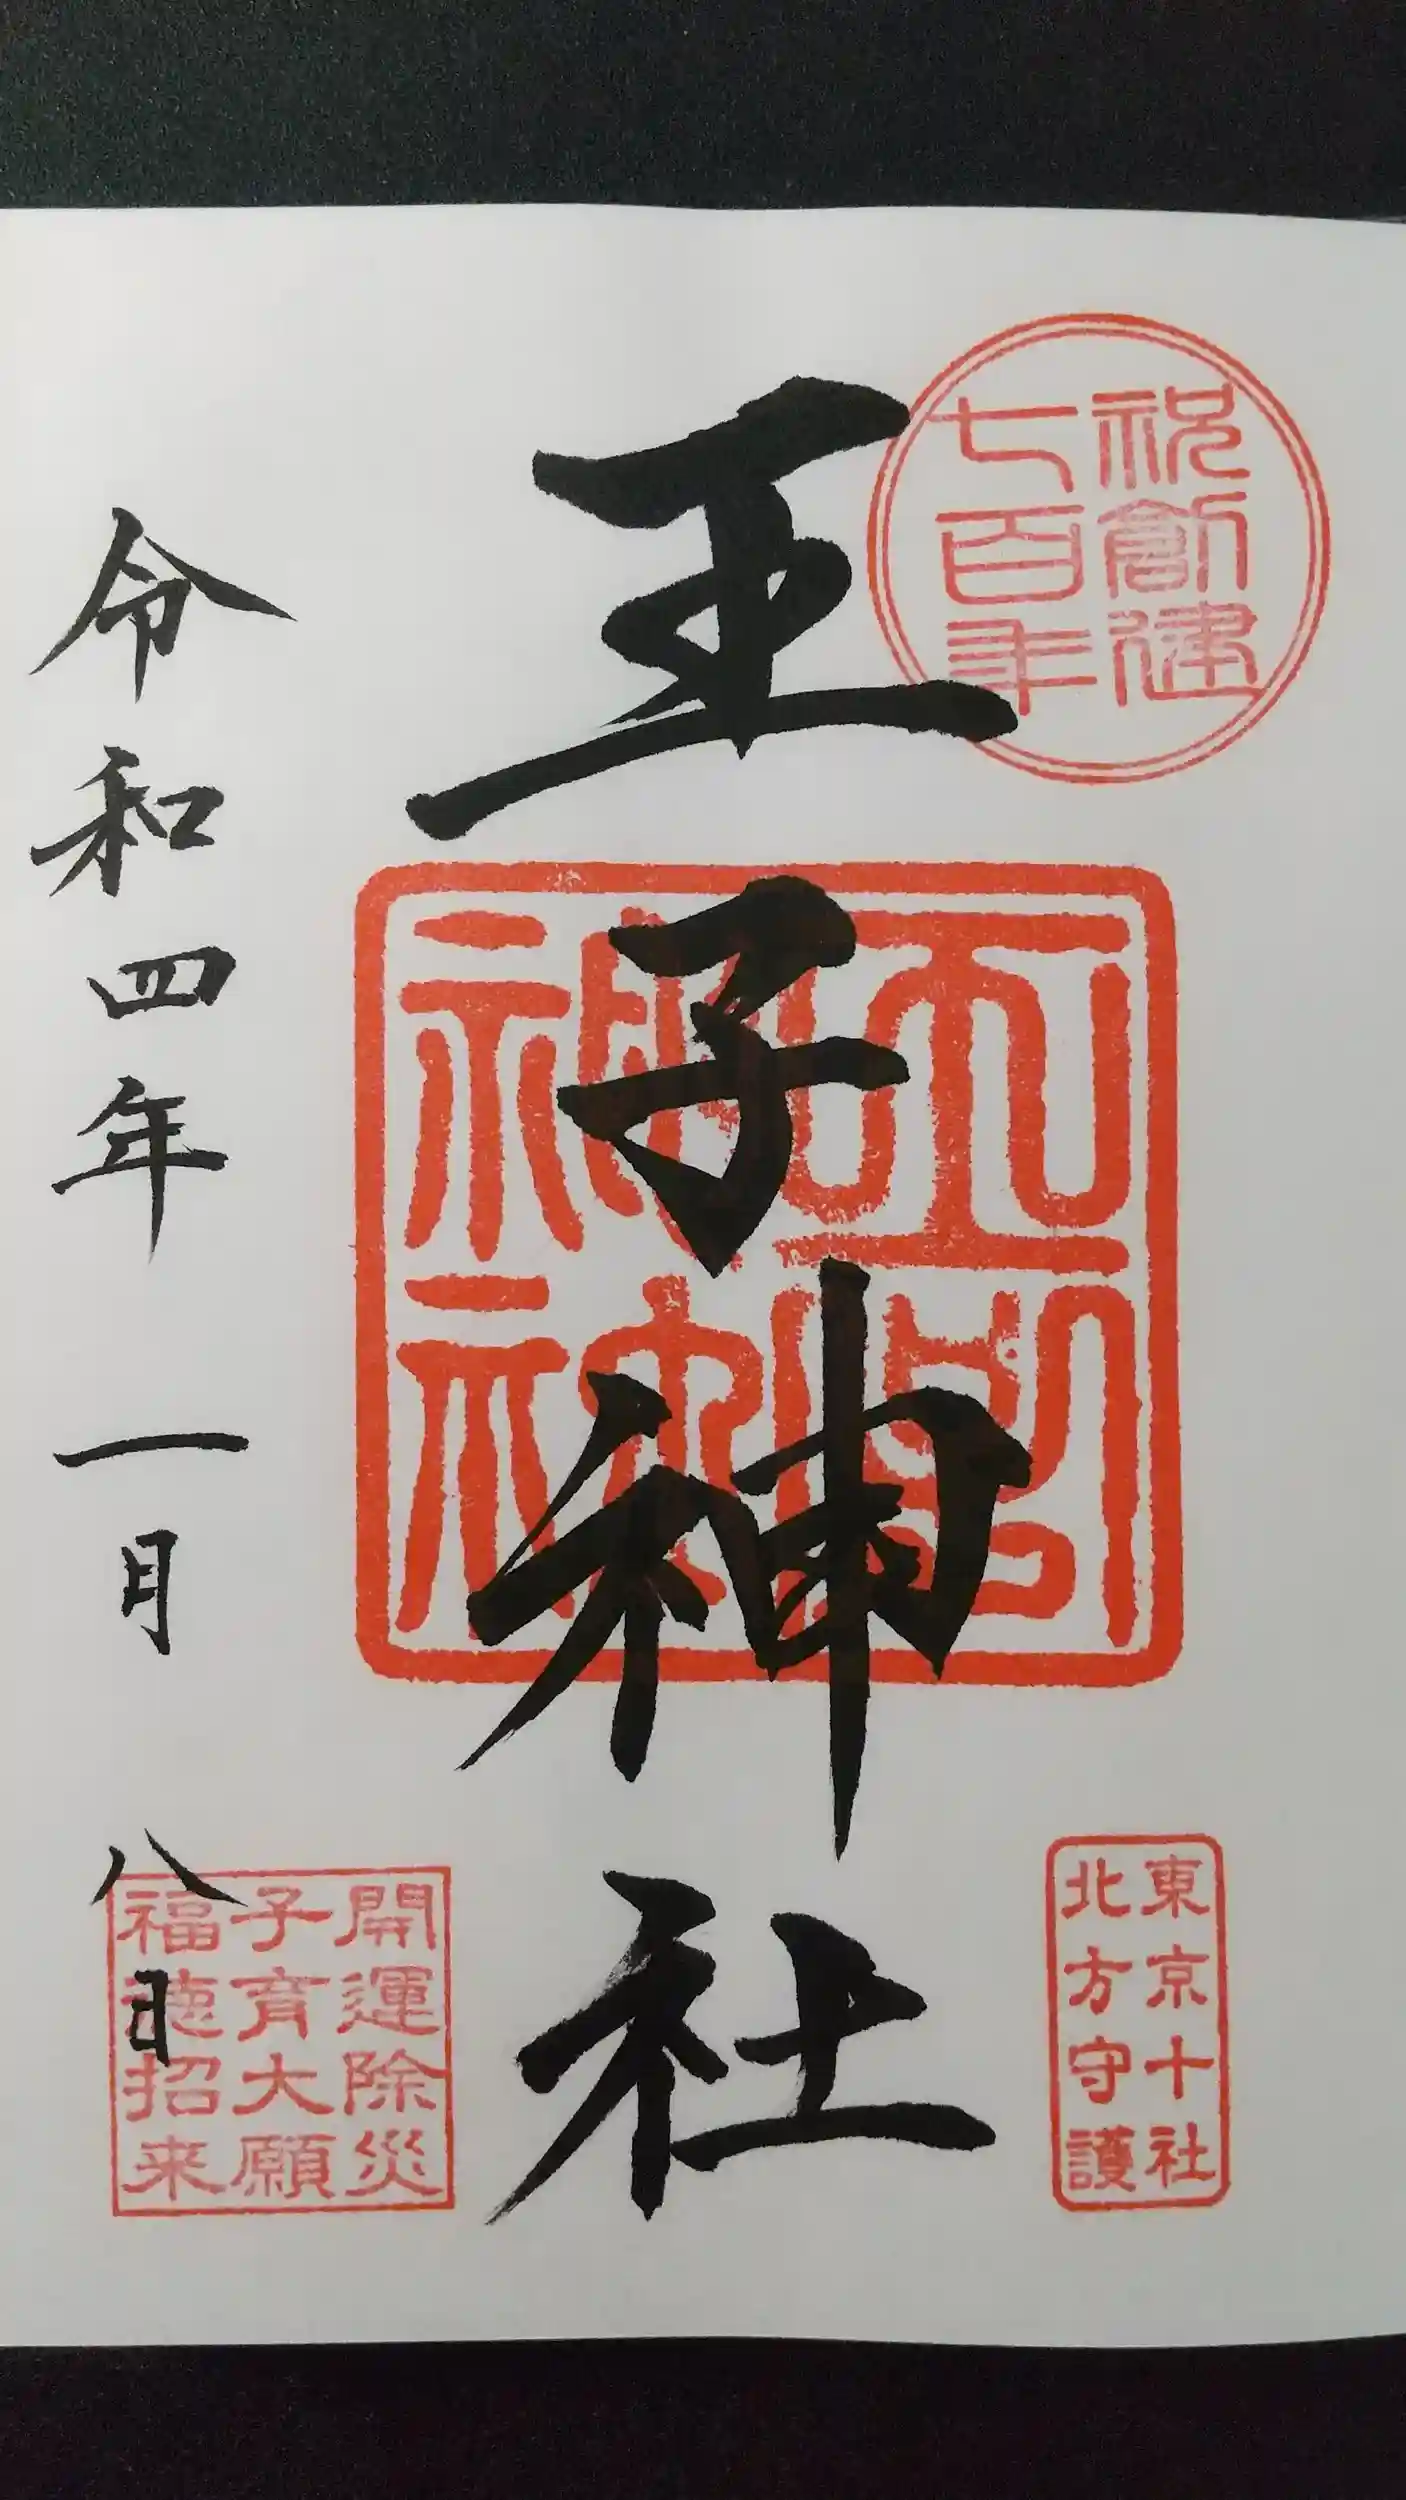 祝創建
七百年
王子神社
東京十社
北方守護
開運除災
子育大願
福徳招来
令和四年一月八日